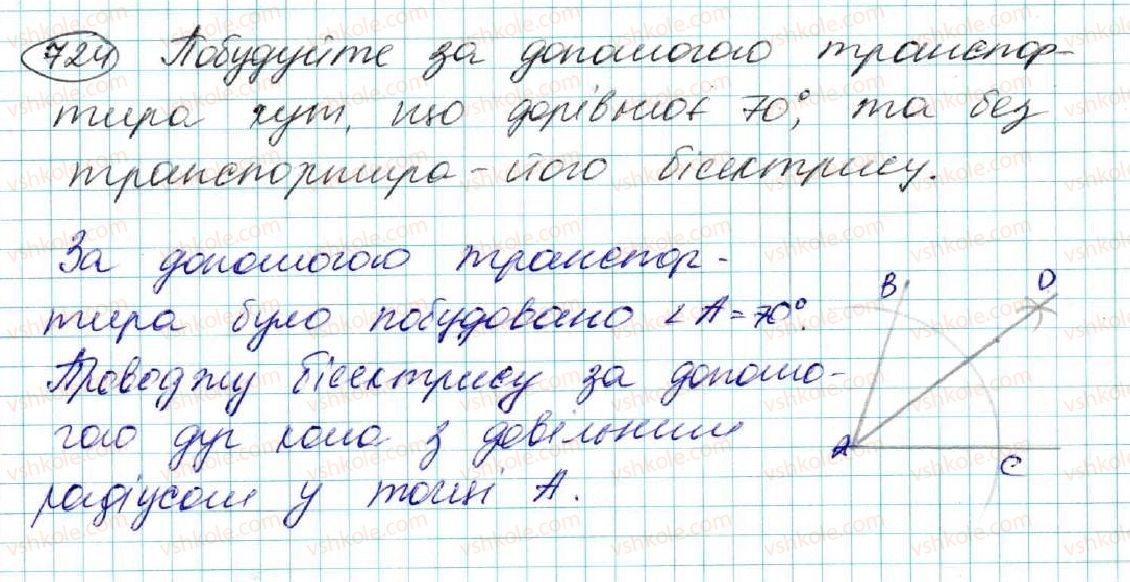 724 Побудуйте за допомогою транспор-
тира кут, що дорівнює 70°, та без
транспортира - його бісектрису.
За допомогою транспор-
тира було побудовано ∠A = 70°.
Проводжу бісектрису за допомо-
гою дуг кола з довільним
радіусом у точці A.
B
D
A
C
vshkole.com